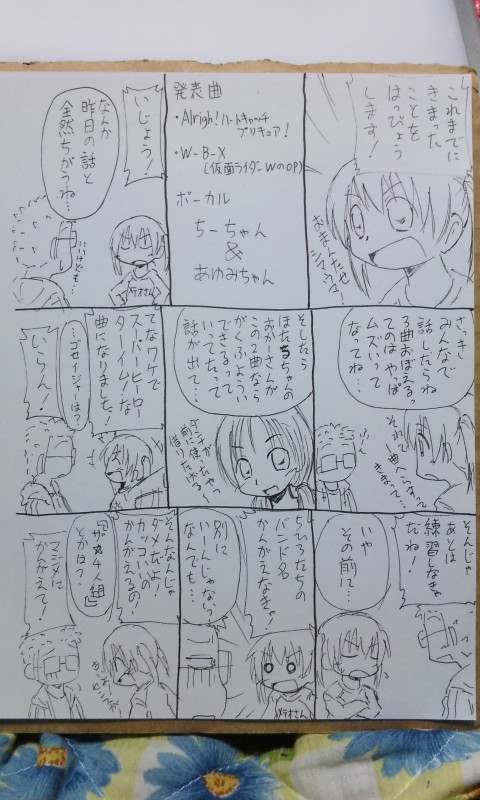 これまでに
きまった
ことを
はっぴょう
します!
発表曲
・Alright!ハートキャッチ
プリキュア!
・W-B-X
(仮面ライダーWのOP)
ボーカル
ちーちゃん
&
あゆみちゃん
いじょう!
なんか
昨日の話と
全然ちがうね
いいけども…
メガネさん
さっき
みんなで
話したらね
3曲おぼえるっ
てのはやっぱ
ムズいって
なってね…
それで
そしたら
ほたるちゃんの
おかーさんが
この2曲なら
がくふようい
できるって
いってたって
話が出て…
てなワケで
スーパーヒーロー
ターイム!な
曲になりました!
…ゴセイジャーは?
いらん!
そんじゃ
あとは
練習しなきゃ
だね!
いや
その前に…
ちひろたちの
バンド名
かんがえなきゃ!
別に
いいんじゃない?
なんでも…
そんなんじゃ
ダメだよ!
カッコいいの
かんがえるの!
『ザ・女4人組』
とかはっ?
マジメに
かんがえて!